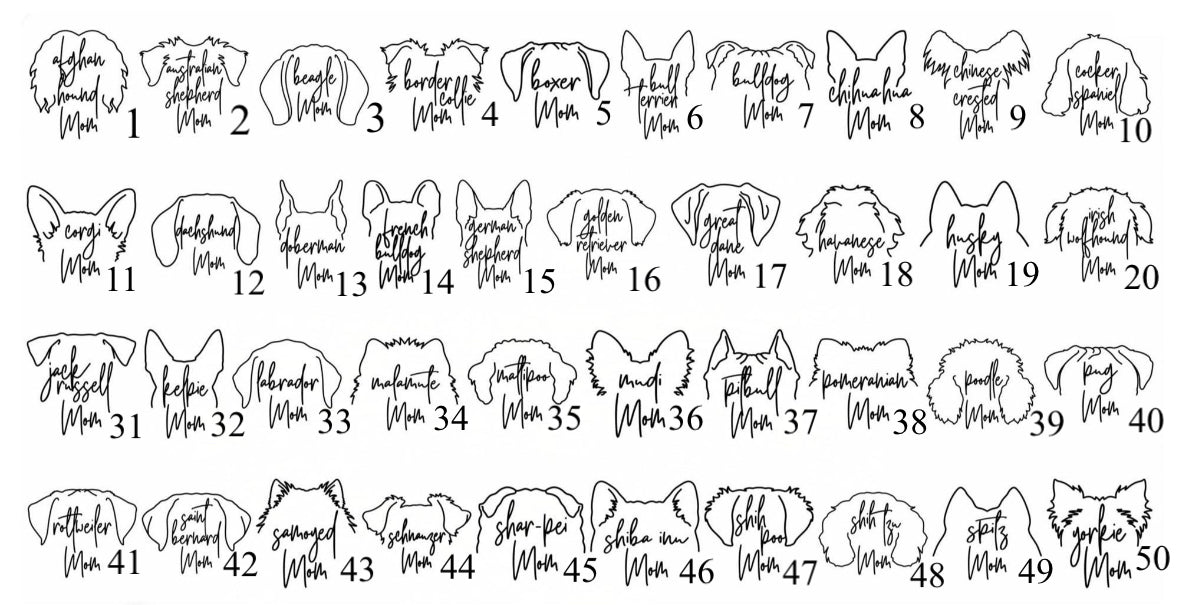 afghan
hound
Mom 1
australian
shepherd
Mom 2
beagle
Mom 3
border
collie
Mom 4
boxer
Mom 5
bull
terrier
Mom 6
bulldog
Mom 7
chihuahua
Mom 8
chinese
crested
Mom 9
cocker
spaniel
Mom 10
corgi
Mom 11
dachshund
Mom 12
doberman
Mom 13
french
bulldog
Mom 14
german
shepherd
Mom 15
golden
retriever
Mom 16
great
dane
Mom 17
havanese
Mom 18
husky
Mom 19
irish
wolfhound
Mom 20
jack
russell
Mom 31
kelpie
Mom 32
labrador
Mom 33
malamute
Mom 34
maltipoo
35
mudi
Mom 36
pitbull
Mom 37
pomeranian
Mom 38
poodle
Mom 39
pug
Mom 40
rottweiler
Mom 41
saint
bernard
Mom 42
samoyed
Mom 43
schnauzer
Mom 44
shar-pei
Mom 45
shiba inu
Mom 46
shih
poo
Mom 47
shih tzu
Mom 48
spitz
Mom 49
yorkie
Mom 50